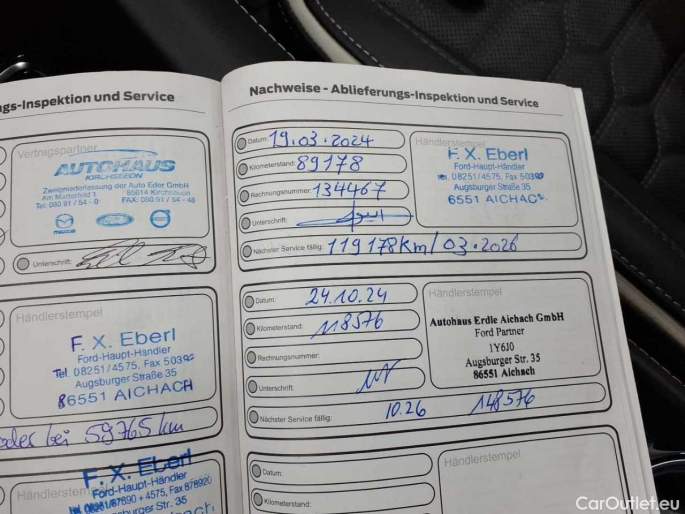 ngs-Inspektion und Service
Vertragspartner
AUTOHAUS
KIRCHSEEON
Zweigniederlassung der Auto Eder GmbH
Am Marterfeld 1 85614 Kirchseeon
Tel: 080 91 / 54 - 0 FAX: 080 91 / 54 - 48
mazda
Unterschrift:
Händlerstempel
F. X. Eberl
Ford-Haupt-Händler
Tel 08251/4575, Fax 50392
Augsburger Straße 35
86551 AICHACH
oder bei 59765 km
Händlerstempel
F. X. Eberl
Ford-Haupt-Händler
Nachweise - Ablieferungs-Inspektion und Service
Datum: 19.03.2024
Kilometerstand: 89178
Rechnungsnummer: 134467
Unterschrift:
Nächster Service fällig: 119178Km/03.2026
Händlerstempel
F. X. Eberl
Ford-Haupt-Händler
08251/4575, Fax 50392
Augsburger Straße 35
6551 AICHACH
Datum: 24.10.24
Kilometerstand: 118576
Rechnungsnummer:
Unterschrift:
Nächster Service fällig: 10.26 148576
Händlerstempel
Autohaus Erdle Aichach GmbH
Ford Partner
1Y6J0
Augsburger Str. 35
86551 Aichach
Datum:
Kilometerstand:
Händlerstempel
CarOutlet.eu